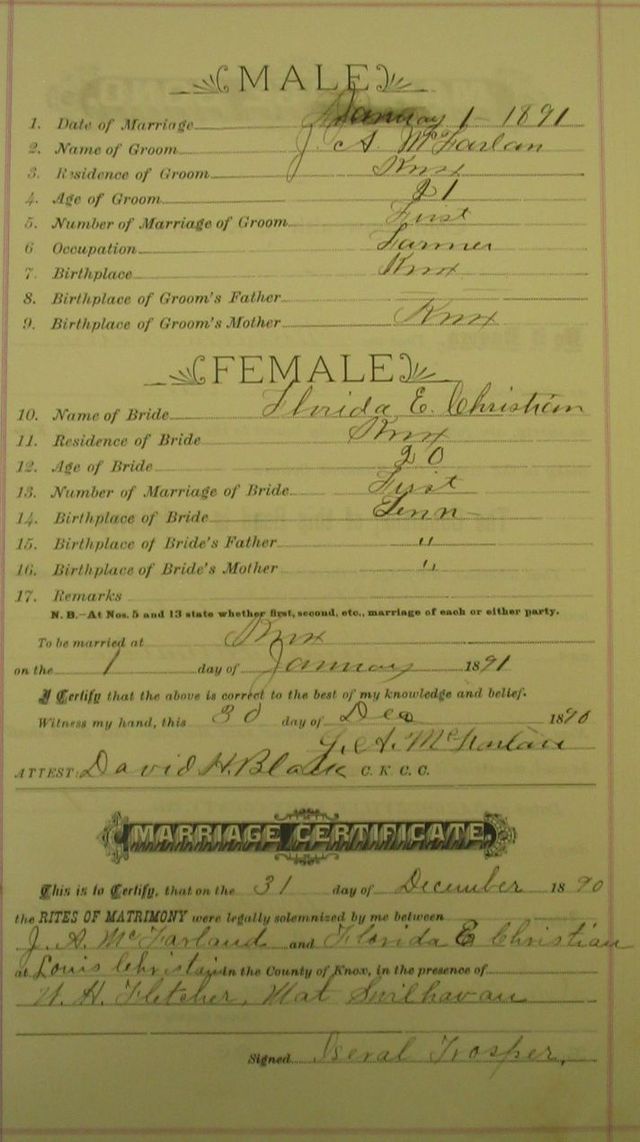 MALE
1. Date of Marriage January 1 - 1891
2. Name of Groom J. A. McFarlan
3. Residence of Groom Knox
4. Age of Groom 21
5. Number of Marriage of Groom First
6 Occupation Farmer
7. Birthplace Knox
8. Birthplace of Groom's Father
9. Birthplace of Groom's Mother Knox
FEMALE
10. Name of Bride Florida E. Christian
11. Residence of Bride Knox
12. Age of Bride 20
13. Number of Marriage of Bride First
14. Birthplace of Bride Tenn
15. Birthplace of Bride's Father "
16. Birthplace of Bride's Mother "
17. Remarks
N. B.—At Nos. 5 and 13 state whether first, second, etc., marriage of each or either party.
To be married at Knox
on the 1 day of January 1891
I Certify that the above is correct to the best of my knowledge and belief.
Witness my hand, this 30 day of Dec 1890
J. A. McFarlan
ATTEST: David H. Black C. K. C. C.
MARRIAGE CERTIFICATE.
This is to Certify, that on the 31 day of December 1890
the RITES OF MATRIMONY were legally solemnized by me between
J. A. McFarland and Florida E Christian
at Louis Christain in the County of Knox, in the presence of
W. H. Fletcher, Mat
Signed Iseral Trosper,